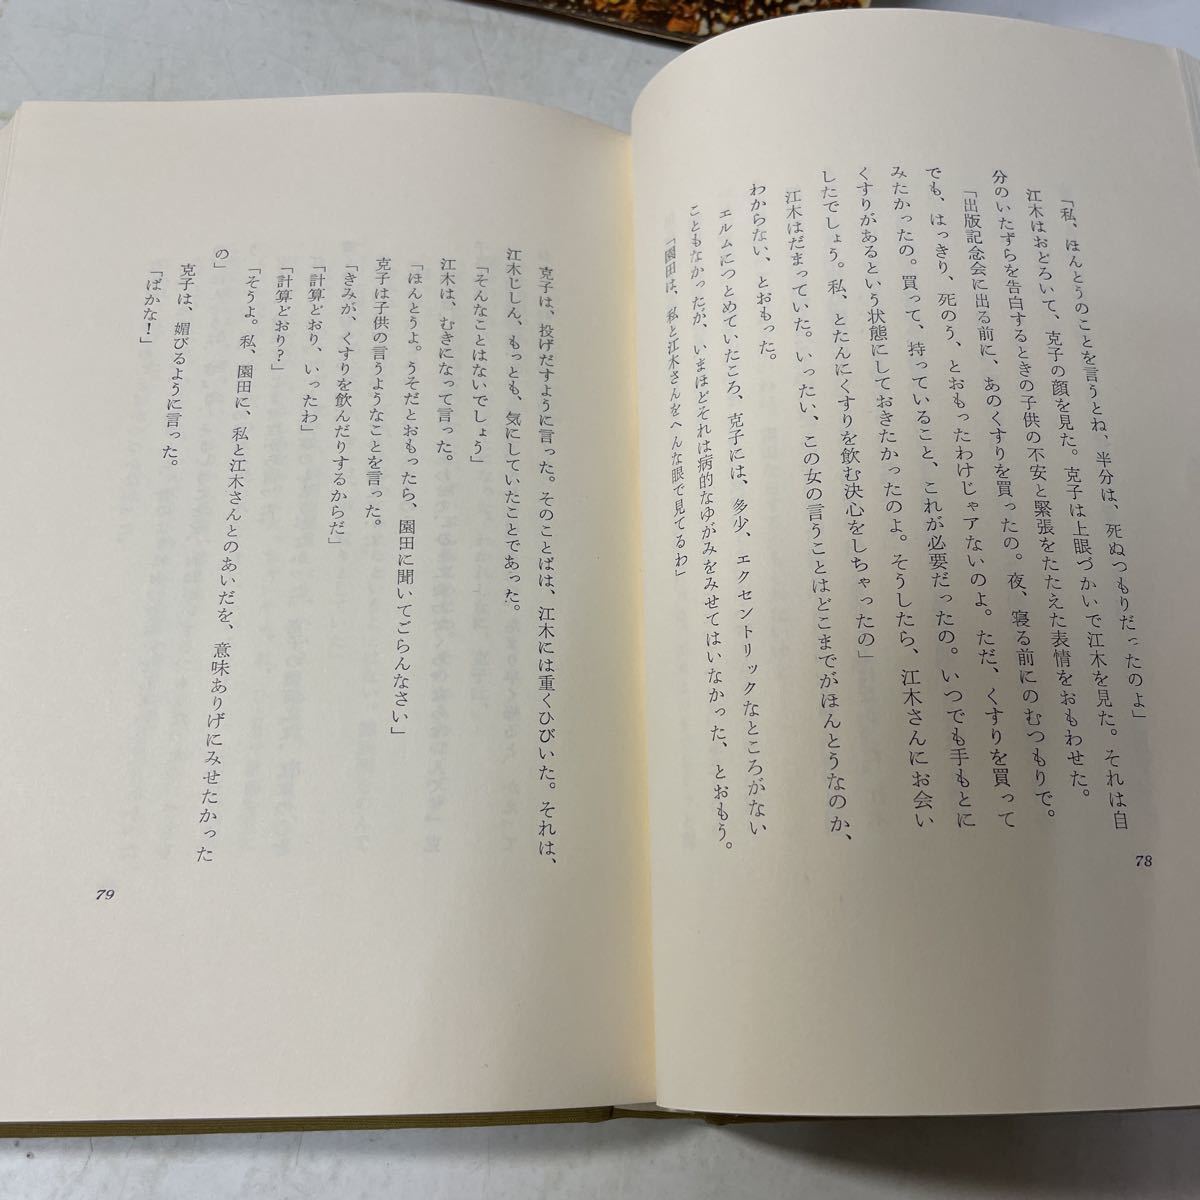 「私、ほんとうのことを言うとね、半分は、死ぬつもりだったのよ」
江木はおどろいて、克子の顔を見た。克子は上眼づかいで江木を見た。それは自
分のいたずらを告白するときの子供の不安と緊張をたたえた表情をおもわせた。
「出版記念会に出る前に、あのくすりを買ったの。夜、寝る前にのむつもりで。
でも、はっきり、死のう、とおもったわけじゃアないのよ。ただ、くすりを買って
みたかったの。買って、持っていること、これが必要だったの。いつでも手もとに
くすりがあるという状態にしておきたかったのよ。そうしたら、江木さんにお会い
したでしょう。私、とたんにくすりを飲む決心をしちゃったの」
江木はだまっていた。いったい、この女の言うことはどこまでがほんとうなのか、
わからない、とおもった。
エルムにつとめていたころ、克子には、多少、エクセントリックなところがない
こともなかったが、いまほどそれは病的なゆがみをみせてはいなかった、とおもう。
「園田は、私と江木さんをへんな眼で見てるわ」
78
克子は、投げだすように言った。そのことばは、江木には重くひびいた。それは、
江木じしん、もっとも、気にしていたことであった。
「そんなことはないでしょう」
江木は、むきになって言った。
「ほんとうよ。うそだとおもったら、園田に聞いてごらんなさい」
克子は子供の言うようなことを言った。
「きみが、くすりを飲んだりするからだ」
「計算どおり、いったわ」
「計算どおり？」
「そうよ。私、園田に、私と江木さんとのあいだを、意味ありげにみせたかった
の」
克子は、媚びるように言った。
「ばかな！」
79